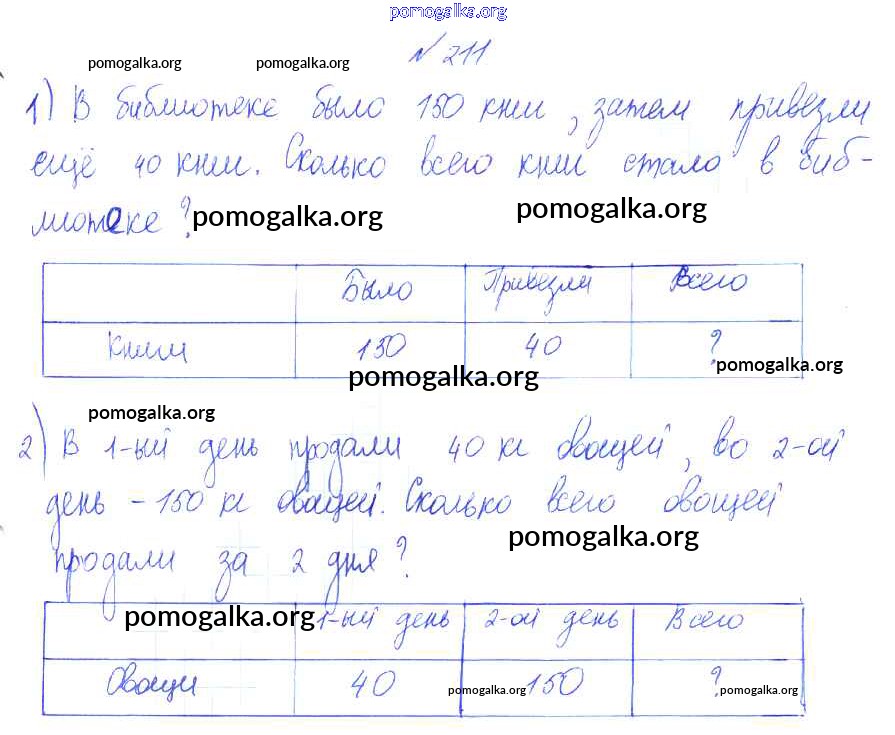 pomogalka.org
№ 211
pomogalka.org pomogalka.org
1) В библиотеке было 150 книг, затем привезли
ещё 40 книг. Сколько всего книг стало в биб-
лиотеке? pomogalka.org pomogalka.org
Было Привезли Всего
Книги 150 40 ?
pomogalka.org pomogalka.org
pomogalka.org
2) В 1-ый день продали 40 кг овощей, во 2-ой
день - 150 кг овощей. Сколько всего овощей
pomogalka.org
продали за 2 дня?
pomogalka.org 1-ый день 2-ой день Всего
Овощи 40 150 ?
pomogalka.org pomogalka.org